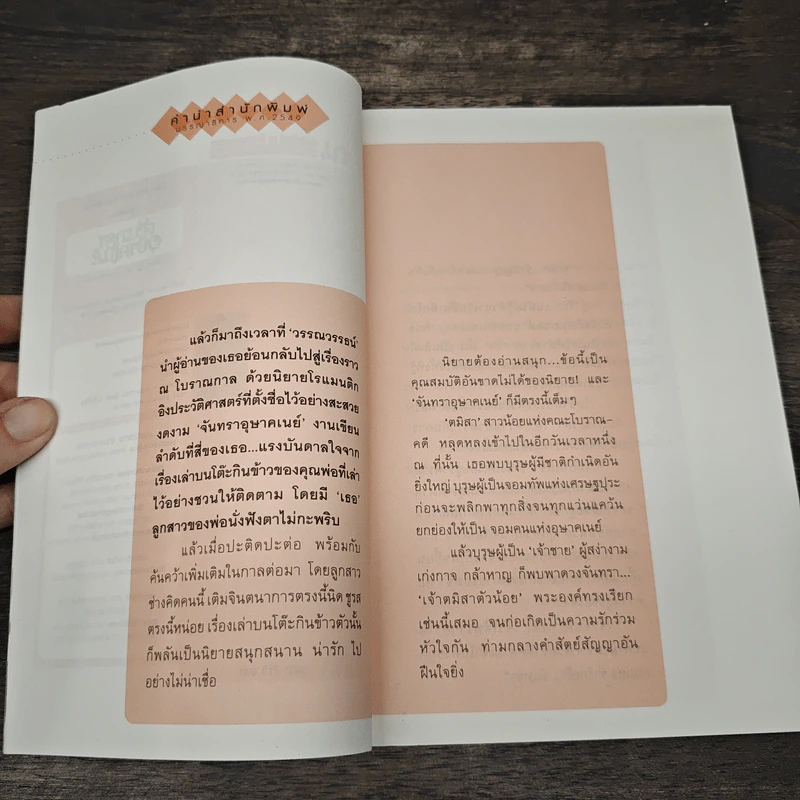 คำนำสำนักพิมพ์
บรรณาธิการ พ.ศ.2540
แล้วก็มาถึงเวลาที่ 'วรรณวรรธน์'
นำผู้อ่านของเธอย้อนกลับไปสู่เรื่องราว
ณ โบราณกาล ด้วยนิยายโรแมนติก
อิงประวัติศาสตร์ที่ตั้งชื่อไว้อย่างสะสวย
งดงาม 'จันทราอุษาคเนย์' งานเขียน
ลำดับที่สี่ของเธอ...แรงบันดาลใจจาก
เรื่องเล่าบนโต๊ะกินข้าวของคุณพ่อที่เล่า
ไว้อย่างชวนให้ติดตาม โดยมี 'เธอ'
ลูกสาวของพ่อนั่งฟังตาไม่กะพริบ
แล้วเมื่อปะติดปะต่อ พร้อมกับ
ค้นคว้าเพิ่มเติมในกาลต่อมา โดยลูกสาว
ช่างคิดคนนี้ เติมจินตนาการตรงนี้นิด ชูรส
ตรงนี้หน่อย เรื่องเล่าบนโต๊ะกินข้าวตัวนั้น
ก็พลันเป็นนิยายสนุกสนาน น่ารัก ไป
อย่างไม่น่าเชื่อ
นิยายต้องอ่านสนุก...ข้อนี้เป็น
คุณสมบัติอันขาดไม่ได้ของนิยาย! และ
'จันทราอุษาคเนย์' ก็มีตรงนี้เต็มๆ
'ตมิสา' สาวน้อยแห่งคณะโบราณ-
คดี หลุดหลงเข้าไปในอีกวันเวลาหนึ่ง
ณ ที่นั้น เธอพบบุรุษผู้มีชาติกำเนิดอัน
ยิ่งใหญ่ บุรุษผู้เป็นจอมทัพแห่งเศรษฐปุระ
ก่อนจะพลิกพาทุกสิ่งจนทุกแว่นแคว้น
ยกย่องให้เป็น จอมคนแห่งอุษาคเนย์
แล้วบุรุษผู้เป็น 'เจ้าชาย' ผู้สง่างาม
เก่งกาจ กล้าหาญ ก็พบพาดวงจันทรา...
'เจ้าตมิสาตัวน้อย' พระองค์ทรงเรียก
เช่นนี้เสมอ จนก่อเกิดเป็นความรักร่วม
หัวใจกัน ท่ามกลางคำสัตย์สัญญาอัน
ฝืนใจยิ่ง